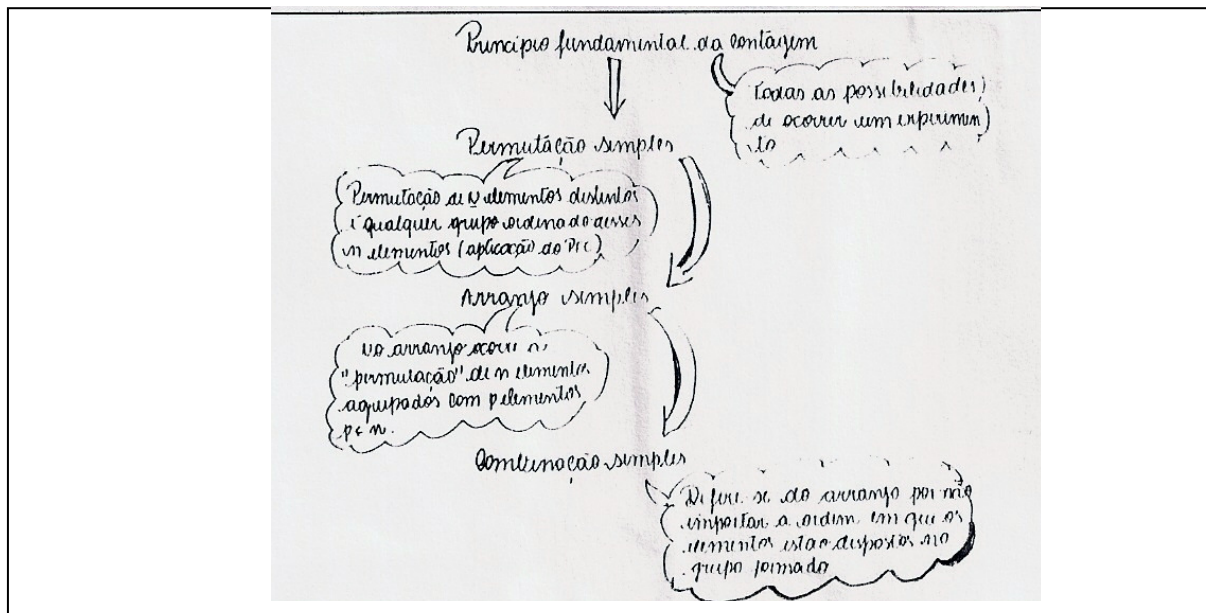 Princípio fundamental da contagem
Todas as possibilidades
de ocorrer um experimen
to
Permutação simples
Permutação de N elementos distintos
é qualquer grupo ordenado desses
n elementos (aplicação do PFC)
Arranjo simples
No arranjo ocorre
"permutação" de n elementos
agrupados com p elementos
Combinação simples
Difere se do arranjo por não
importar a ordem em que os
elementos estão dispostos no
grupo formado